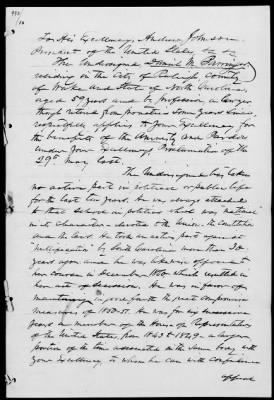 To His Excellency, Andrew Johnson.
President of the United States
The Undersigned Daniel M. Barringer
residing in the City of Raleigh, County
of Wake and State of North Carolina,
aged 59 years and by profession a lawyer
though retired from practice some years since,
respectfully applies to Your Excellency for
the benefits of the Amnesty and Pardon
under Your Excellency's Proclamation of the
29th May last.
The Undersigned has taken
no active part in political or public life
for the last ten years. He was always attached
to that school in politics which was national
in its character - devoted to the Union. to Constitution
and the laws. He took an active part against
"nullification" by South Carolina more than 30
years ago and he was likewise opposed to
her course in December 1860 which resulted in
her act of secession. He was in favor of
maintaining in good faith the great compromise
measures of 1850-51. He was for six successive
years a member of the House of Representatives
of the United States from 1843 to 1849 - a larger
portion of the time associated in the same body with
Your Excellency to whom he can with confidence
appeal